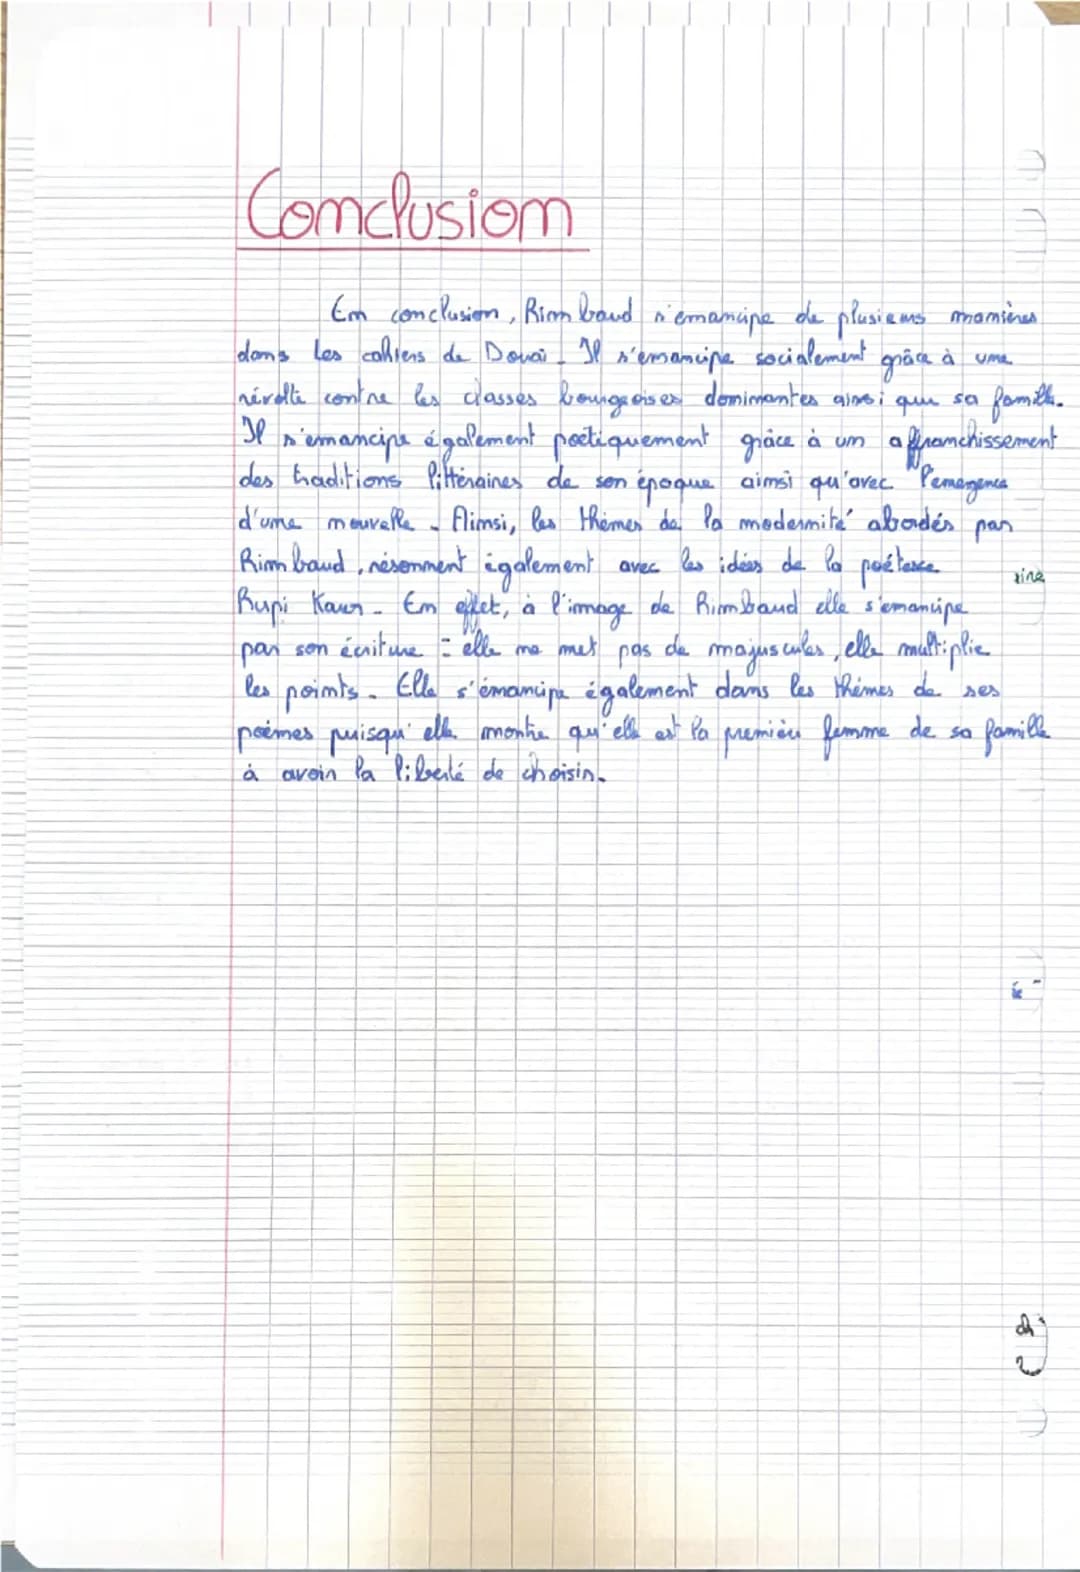 Conclusion
En conclusion, Rimbaud s'emancipe de plusieurs manières
dans les cahiers de Douai. Il s'emancipe socialement grâce à une
révolte contre les classes bourgeoises dominantes ainsi que sa famille.
Il s'emancipe également poétiquement grâce à un affranchissement
des traditions littéraires de son époque ainsi qu'avec l'emergence
d'une nouvelle. Ainsi, les thèmes de la modernité abordés par
Rimbaud, résonnent également avec les idées de la poétesse
Rupi Kaur. En effet, à l'image de Rimbaud elle s'emancipe
par son écriture : elle ne met pas de majuscules, elle multiplie
les points. Elle s'émancipe également dans les thèmes de ses
poèmes puisqu'elle montre qu'elle est la première femme de sa famille
à avoir la liberté de choisir.